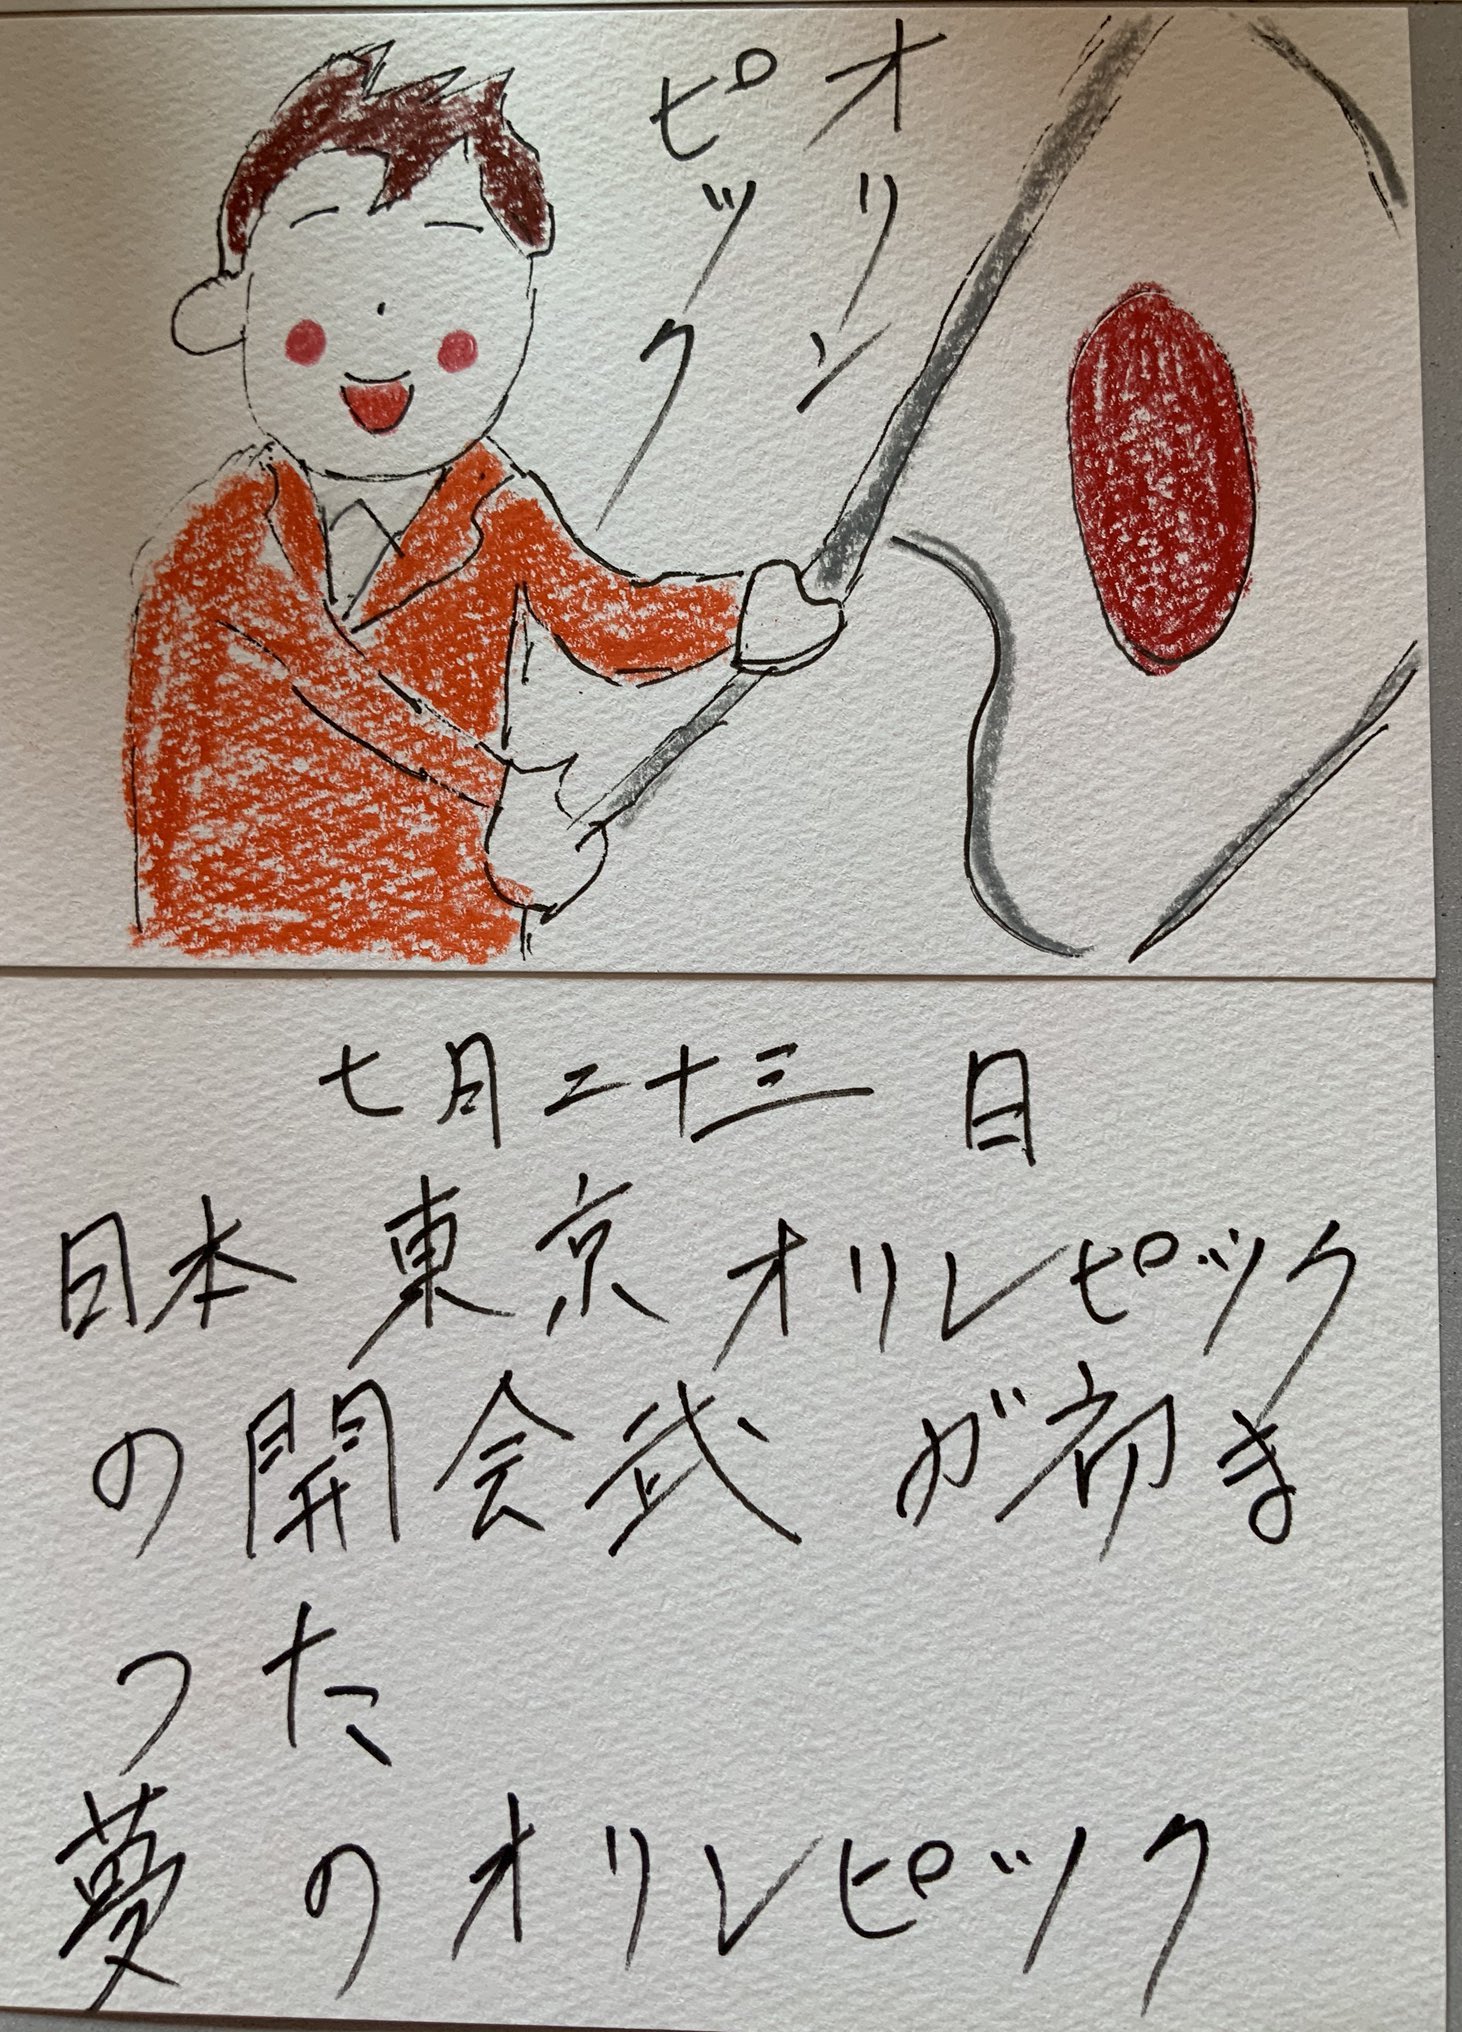 オリン
ピック
七月二十三日
日本東京オリンピック
の開会武が初ま
った
夢のオリンピック